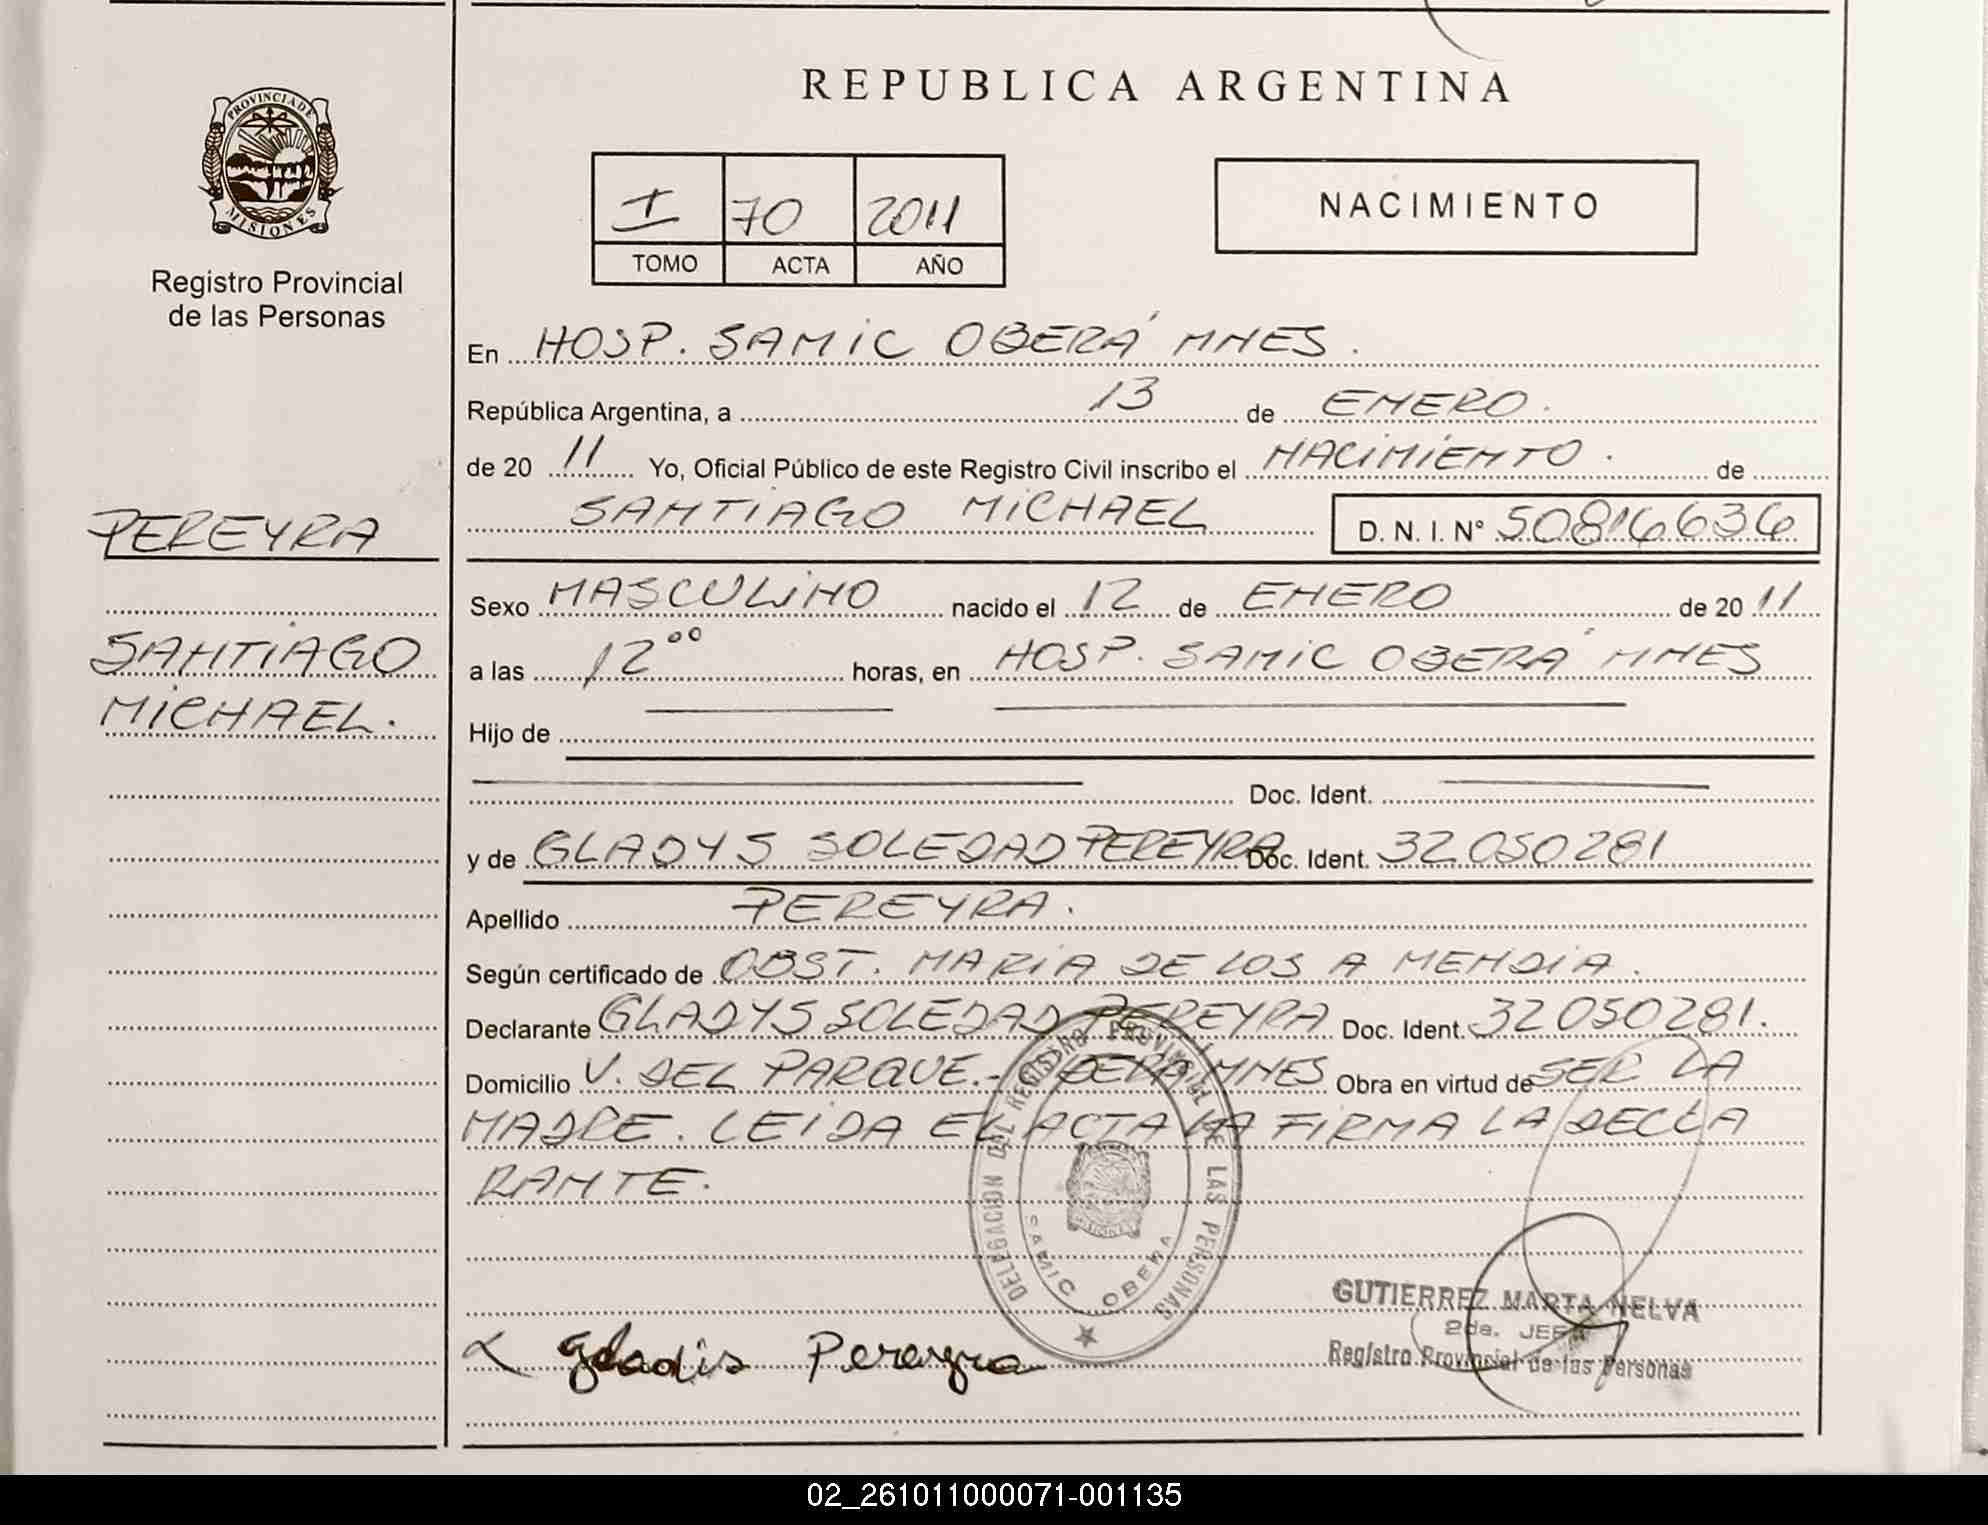 REPUBLICA ARGENTINA
PROVINCIA DE
MISIONES
Registro Provincial
de las Personas
I 70 2011
TOMO ACTA AÑO
NACIMIENTO
En HOSP. SAMIC OBERÁ MNES.
República Argentina, a 13 de ENERO.
de 20 11 Yo, Oficial Público de este Registro Civil inscribo el NACIMIENTO. de
SANTIAGO MICHAEL D. N. I. N° 50816636
PEREYRA
SANTIAGO
MICHAEL.
Sexo MASCULINO nacido el 12 de ENERO de 20 11
a las 12°° horas, en HOSP. SAMIC OBERÁ MNES
Hijo de
Doc. Ident.
y de GLADYS SOLEDAD PEREYRA Doc. Ident. 32050281
Apellido PEREYRA.
Según certificado de OBST. MARIA DE LOS A MENDIA.
Declarante GLADYS SOLEDAD PEREYRA Doc. Ident. 32050281.
Domicilio V. DEL PARQUE.- OBERÁ MNES Obra en virtud de SER LA
MADRE. LEIDA EL ACTA LA FIRMA LA DECLA
RANTE.
DELEGACION DEL REGISTRO PROVINCIAL DE LAS PERSONAS
SAMIC OBERA
GUTIERREZ MARTA NELVA
2da. JEFA
Registro Provincial de las Personas
gladis Pereyra
02_261011000071-001135